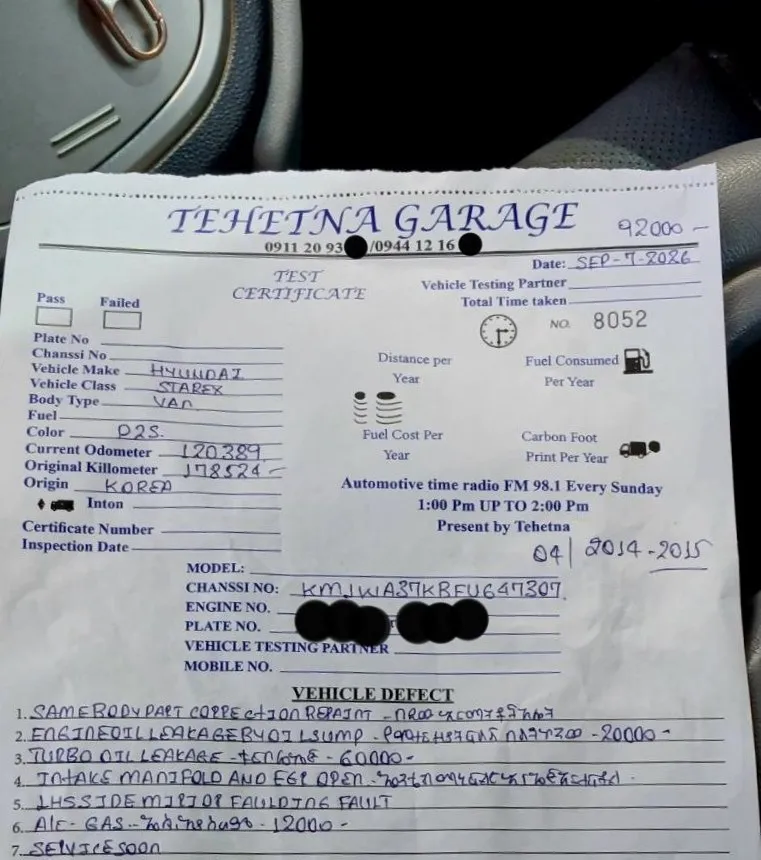 TEHETNA GARAGE
92000 -
0911 20 93 /0944 12 16
Date: SEP-7-2026
TEST
CERTIFICATE
Vehicle Testing Partner
Total Time taken
Pass Failed
NO. 8052
Plate No
Chanssi No
Vehicle Make HYUNDAI
Vehicle Class STAREX
Body Type VAn
Fuel
Color D2S.
Current Odometer 120389
Original Killometer 178524 -
Origin KOREA
Inton
Certificate Number
Inspection Date
Distance per
Year
Fuel Consumed
Per Year
Fuel Cost Per
Year
Carbon Foot
Print Per Year
Automotive time radio FM 98.1 Every Sunday
1:00 Pm UP TO 2:00 Pm
Present by Tehetna
04 | 2014-2015
MODEL:
CHANSSI NO: KMJWA37KBFU647307
ENGINE NO.
PLATE NO.
VEHICLE TESTING PARTNER
MOBILE NO.
VEHICLE DEFECT
1. SAMEBODYPART CORRECTION REPAINT -
2. ENGINEOIL LEAKAGE BY OIL SUMP - - 20000 -
3. TURBO OIL LEAKAGE - - 60000 -
4. INTAKE MANIFOLD AND EGR OPEN -
5. LHS SIDE MIRIOR FAULDING FAULT
6. A/C - GAS - - 12000 -
7. SERVICE SOON